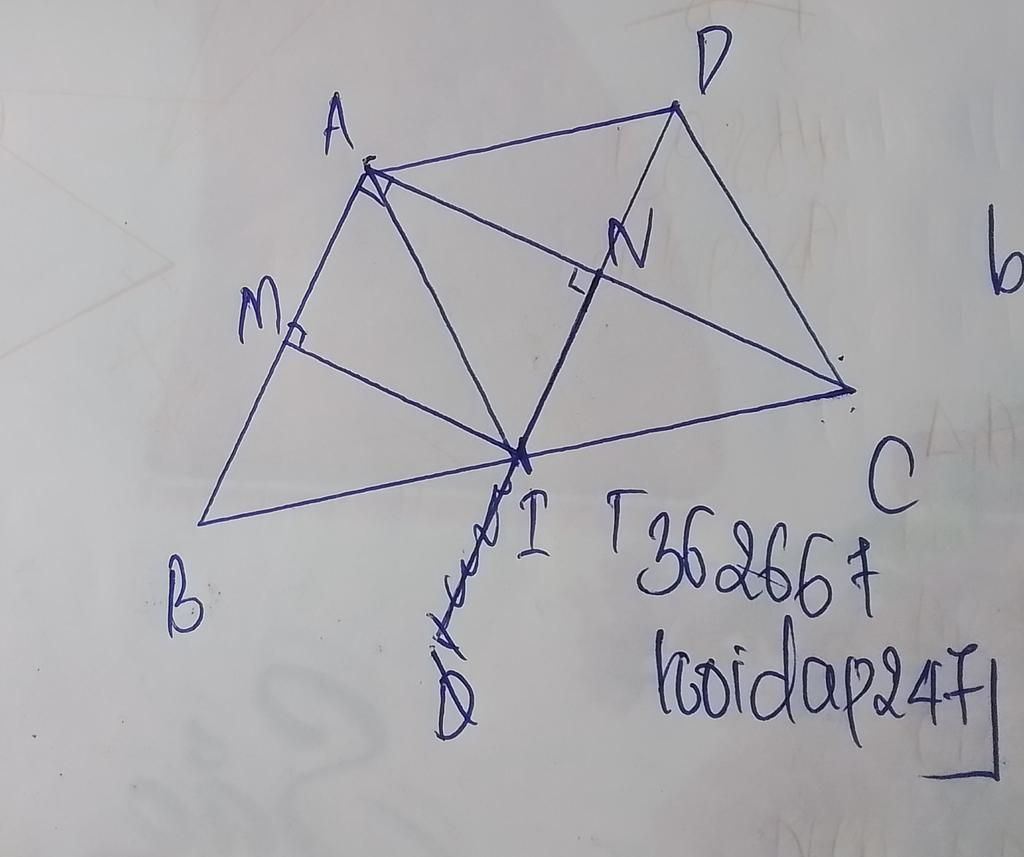 D
A
N
b
M
C
I
T362667
hoidap247
B
D